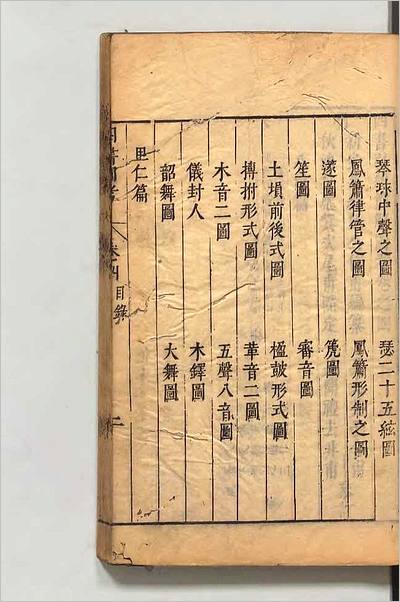 琴球中聲之圖 瑟二十五絃圖
鳳簫律管之圖 鳳簫形制之圖
篴圖 篪圖
笙圖 審音圖
土塤前後式圖 楹鼓形式圖
搏拊形式圖 革音二圖
木音二圖 五聲八音圖
儀封人 木鐸圖
韶舞圖 大舞圖
里仁篇
卷四 目錄 二